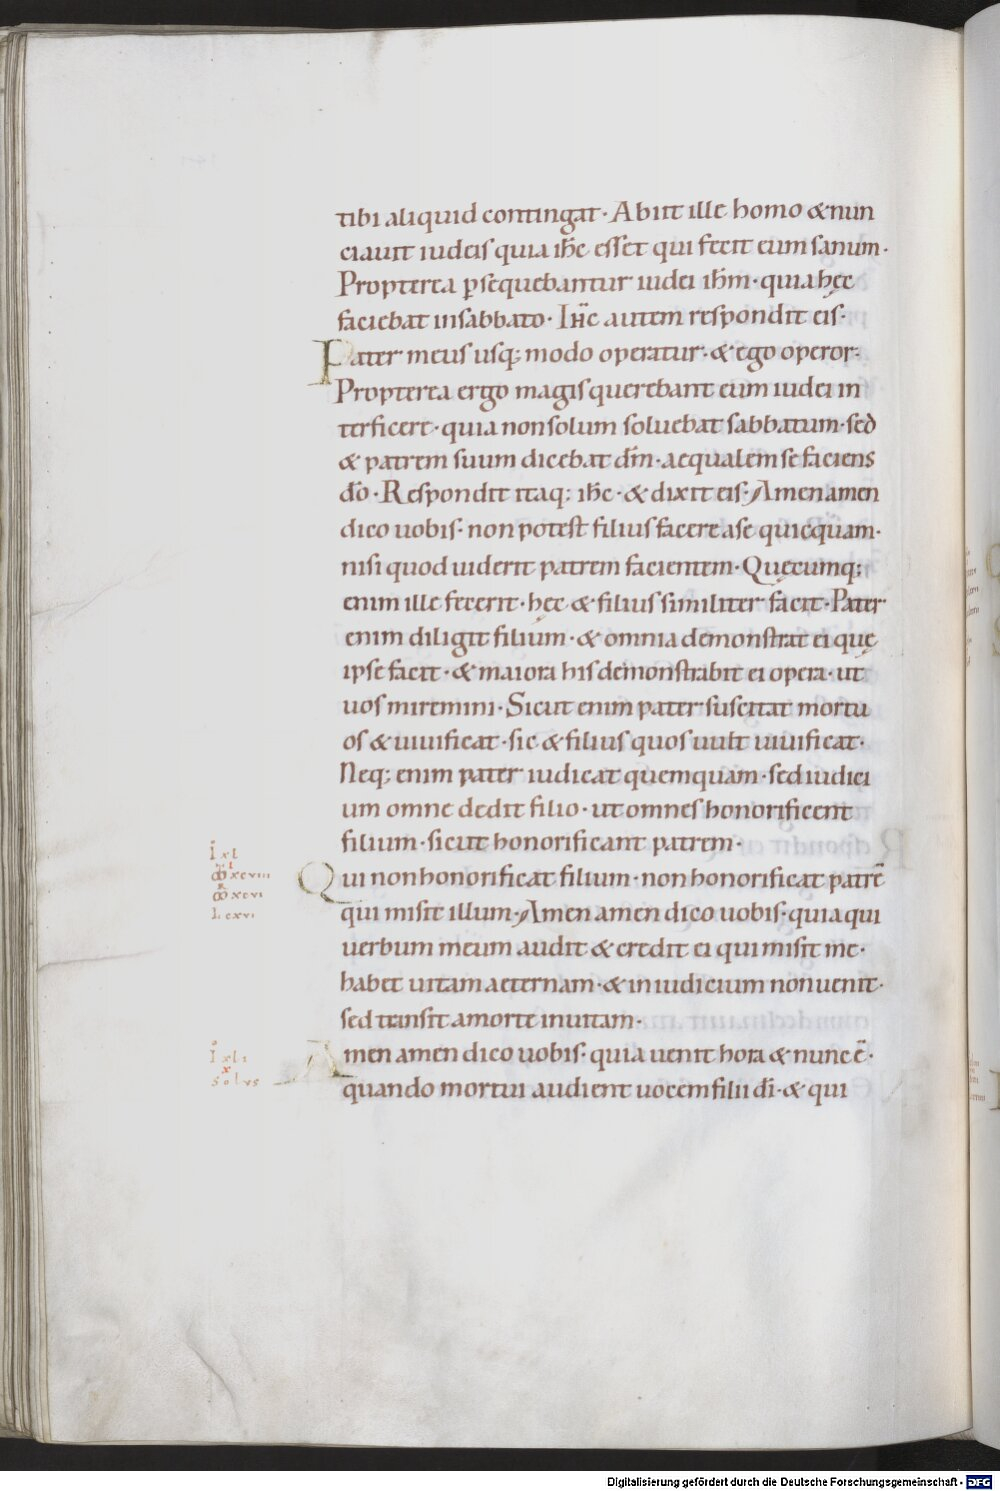 tibi aliquid contingat · Abiit ille homo & nun
ciauit iudeis quia ihc̄ esset qui fecit eum sanum ·
Propterea ꝑsequebantur iudei ihm̄ · quia hęc
faciebat insabbato · Ihc̄ autem respondit eis ·
Pater meus usq; modo operatur · & ego operor ·
Propterea ergo magis querebant eum iudei in
terficere · quia non solum soluebat sabbatum · sed
& patrem suum dicebat dm̄ · aequalem se faciens
do̅ · Respondit itaq; ihc̄ · & dixit eis · Amen amen
dico uobis · non potest filius facere ase quicquam ·
nisi quod uiderit patrem facientem · Quęcumq;
enim ille fecerit · hęc & filius similiter facit · Pater
enim diligit filium · & omnia demonstrat ei quę
ipse facit · & maiora his demonstrabit ei opera · ut
uos miremini · Sicut enim pater suscitat mortu
os & uiuificat · sic & filius quos uult uiuificat ·
Neq; enim pater iudicat quemquam · sed iudici
um omne dedit filio · ut omnes honorificent
filium · sicut honorificant patrem ·
Ixl
xcviii
xcvi
L cxvi
Qui non honorificat filium · non honorificat patrē
qui misit illum · Amen amen dico uobis · quia qui
uerbum meum audit & credit ei qui misit me ·
habet uitam aeternam · & in iudicium non uenit ·
sed transit amorte inuitam ·
Ixli
x
solus
Amen amen dico uobis · quia uenit hora & nunc ē ·
quando mortui audient uocem filii dī · & qui
Digitalisierung gefördert durch die Deutsche Forschungsgemeinschaft - DFG